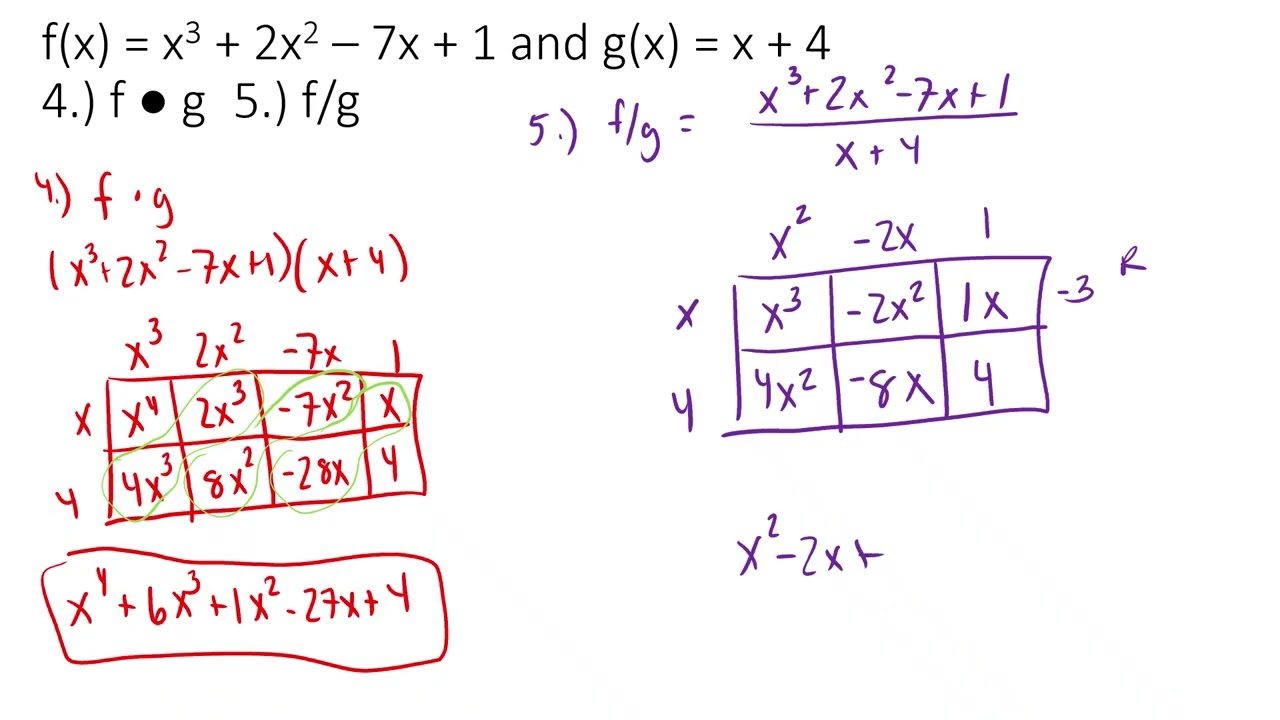 f(x) = x³ + 2x² – 7x + 1 and g(x) = x + 4
4.) f ● g 5.) f/g
4.) f · g
(x³+2x²-7x+1)(x+4)
x³ 2x² -7x 1
x x⁴ 2x³ -7x² x
4 4x³ 8x² -28x 4
x⁴+6x³+1x²-27x+4
5.) f/g =
x³+2x²-7x+1
x+4
x² -2x 1
x x³ -2x² 1x -3 R
4 4x² -8x 4
x²-2x+